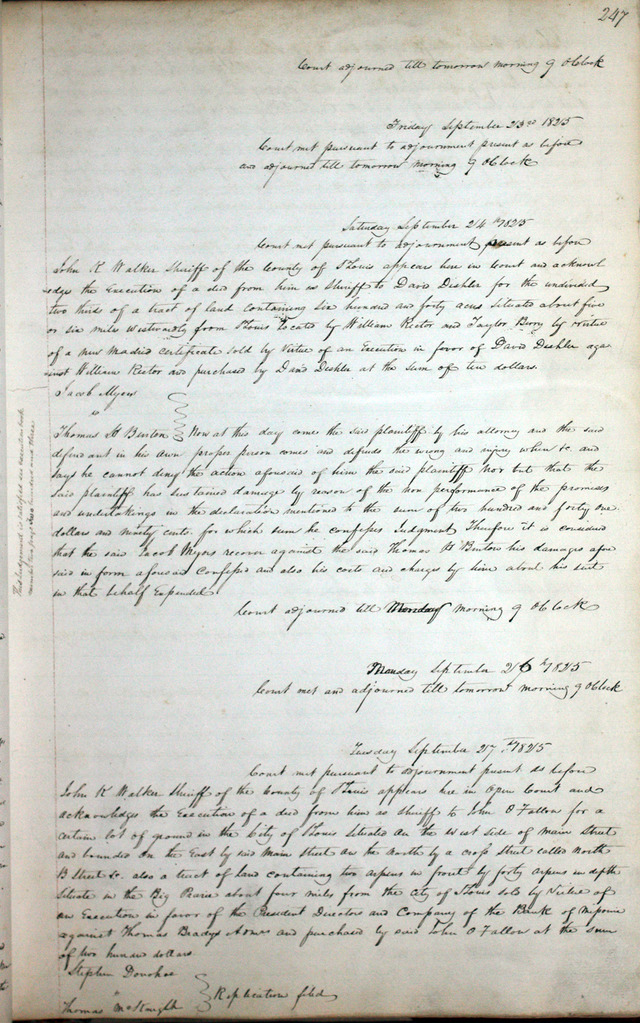 247
Court adjourned till tomorrow morning 9 OClock
Friday September 23rd 1825
Court met pursuant to adjournment present as before
and adjourned till tomorrow morning 9 OClock
Saturday September 24th 1825
Court met pursuant to adjournment present as before
John K Walker Sheriff of the County of St Louis appears here in Court and acknowl
edges the Execution of a deed from him as sheriff to David Deshler for the undivided
two thirds of a tract of land containing six hundred and forty acres situated about five
or six miles westwardly from St Louis located by William Rector and Taylor Berry by virtue
of a new Madrid certificate sold by Virtue of an Execution in favor of David Deshler aga
inst William Rector and purchased by David Deshler at the sum of ten dollars.
Jacob Myers
vs
Thomas H Benton } Now at this day comes the said plaintiff by his attorney and the said
defendant in his own proper person comes and defends the wrong and injury when &c and
says he cannot deny the action aforesaid of him the said plaintiff Nor but that the
said plaintiff has sustained damage by reason of the non performance of the promises
and undertakings in the declaration mentioned to the sum of two hundred and forty one
dollars and ninety cents for which sum he confesses Judgment Therefore it is considered
that the said Jacob Myers recover against the said Thomas H Benton his damages afore
said in form aforesaid Confessed and also his costs and charges by him about his suit
in that behalf Expended.
Court adjourned till Monday morning 9 OClock
This judgement is satisfied see execution book
Monday September 26th 1825
Court met and adjourned till tomorrow morning 9 OClock
Tuesday September 27th 1825
Court met pursuant to adjournment present as before
John K Walker Sheriff of the County of St Louis appears here in Open Court and
acknowledges the Execution of a deed from him as sheriff to John O Fallon for a
certain lot of ground in the City of St Louis Situated on the west side of main Street
and bounded on the East by said Main Street on the North by a cross Street called North
B Street &c. also a tract of land containing two arpens in front by forty arpens in depth
Situate in the Big Prairie about four miles from the City of St Louis sold by Virtue of
an Execution in favor of the President Directors and Company of the Bank of Missouri
against Thomas Bradys Admrs and purchased by said John O Fallon at the sum
of two hundred dollars.
Stephen Donohoe
vs
Thomas McKnight } Replication filed